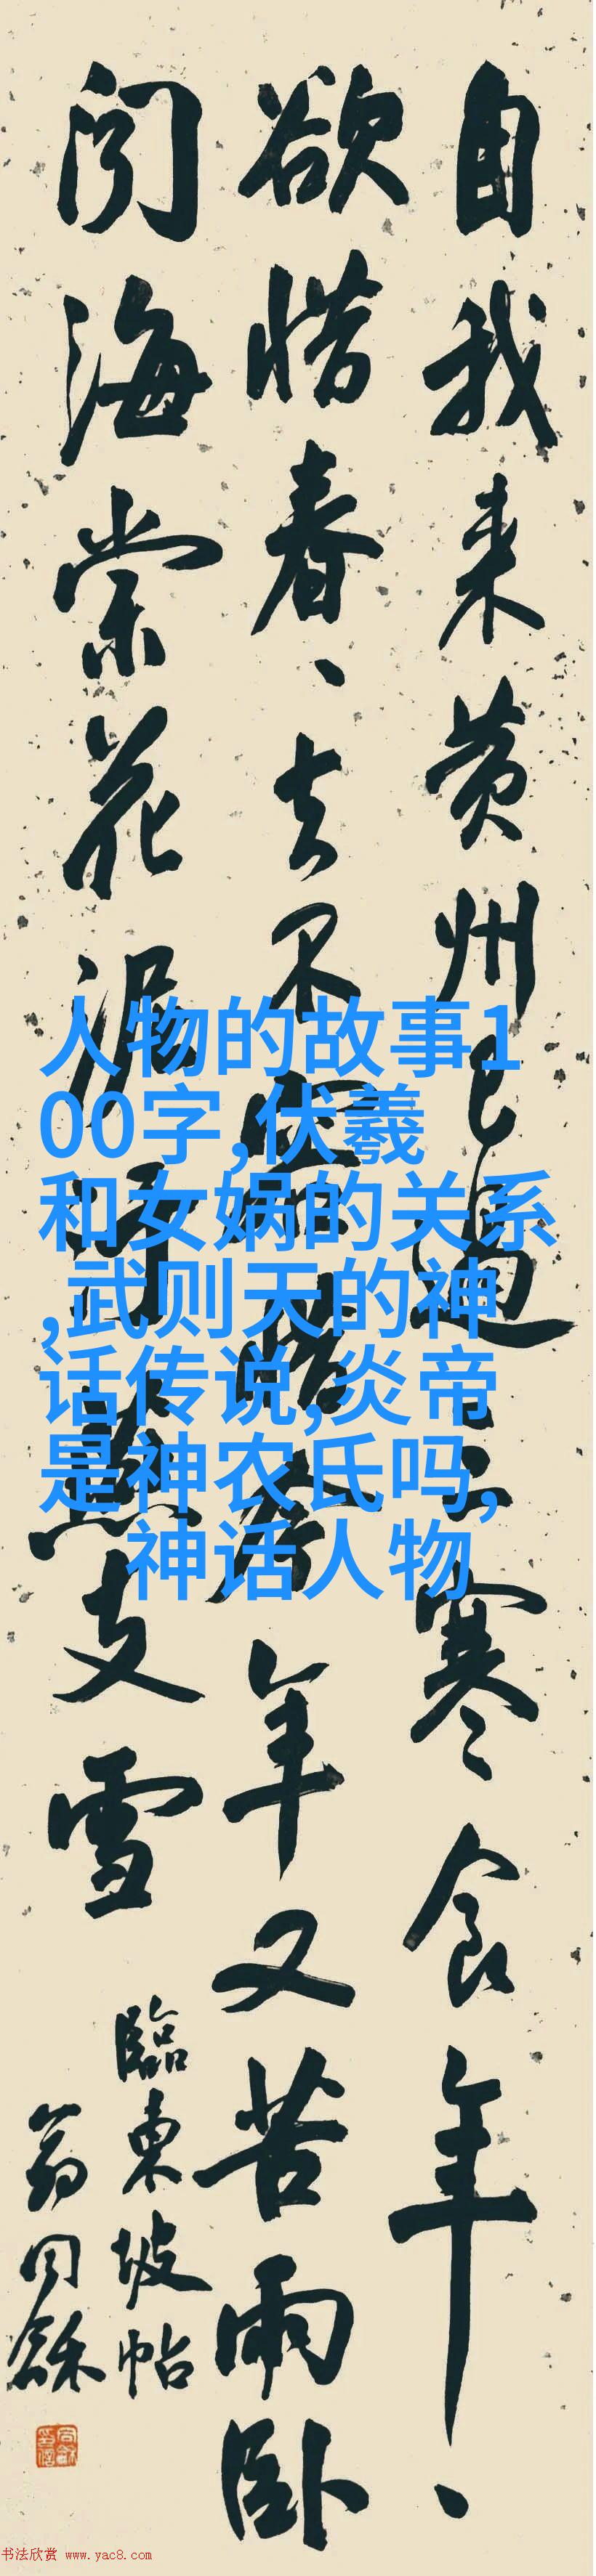 自我来黄州已過三寒食年〻
欲惜春〻去不容惜今年又苦雨卧
闻海棠花泥汙燕支雪
臨東坡帖
翁同龢
人物的故事1
00字,伏羲
和女娲的关系
,武则天的神
话传说,炎帝
是神农氏吗,
神话人物
书法欣赏 www.yac8.com